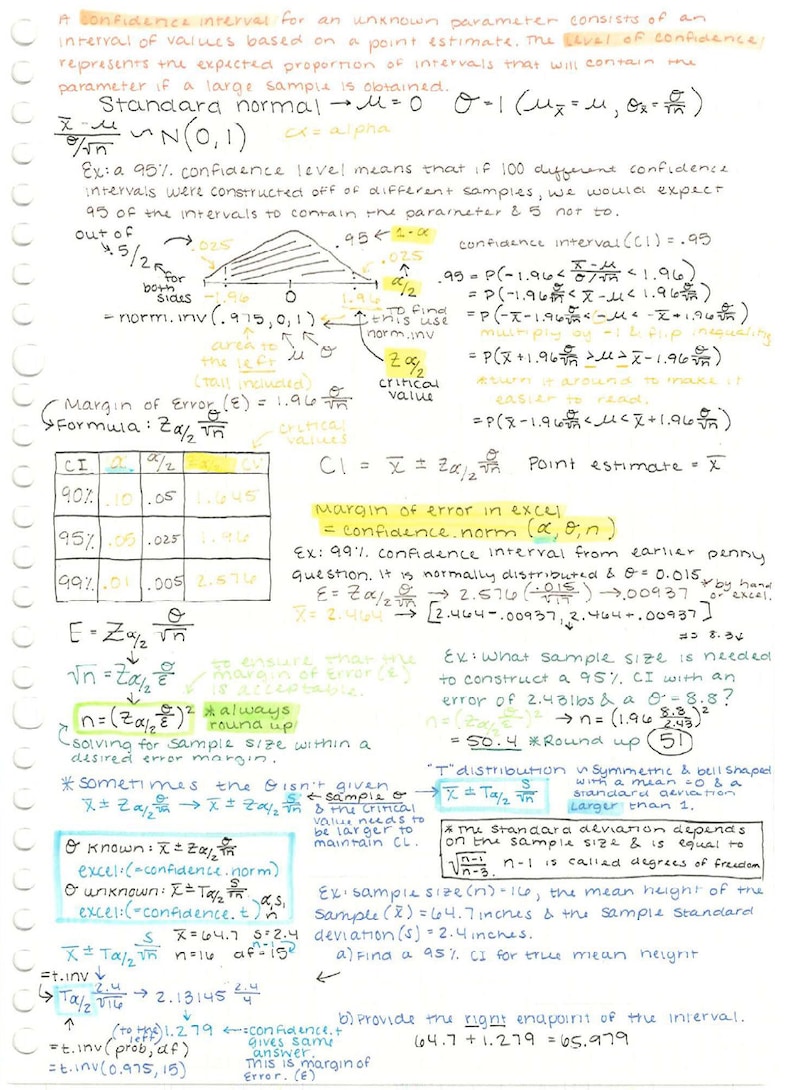 A confidence interval for an unknown parameter consists of an
interval of values based on a point estimate. The level of confidence
represents the expected proportion of intervals that will contain the
parameter if a large sample is obtained.
Standard normal → μ = 0 σ = 1 (μx̄ = μ, σx̄ = σ/√n)
x̄ - μ / σ/√n ~ N(0,1) α = alpha
Ex: a 95% confidence level means that if 100 different confidence
intervals were constructed off of different samples, we would expect
95 of the intervals to contain the parameter & 5 not to.
out of
.5/2
for
both
sides
.025
.95 ← 1-α
.025
α/2
-1.96 0 1.96
= norm.inv(.975,0,1)
area to
the left
(tail included)
μ σ
to find
this use
norm.inv
Zα/2
critical
value
confidence interval (CI) = .95
.95 = P(-1.96 < x̄-μ / σ/√n < 1.96)
= P(-1.96 σ/√n < x̄-μ < 1.96 σ/√n)
= P(-x̄-1.96 σ/√n < -μ < -x̄+1.96 σ/√n)
multiply by -1 & flip inequality
= P(x̄+1.96 σ/√n > μ > x̄-1.96 σ/√n)
*turn it around to make it
easier to read.
= P(x̄-1.96 σ/√n < μ < x̄+1.96 σ/√n)
Margin of Error (E) = 1.96 σ/√n
Formula: Zα/2 σ/√n
critical
values
CI α α/2
90% .10 .05 1.645
95% .05 .025 1.96
99% .01 .005 2.576
CI = x̄ ± Zα/2 σ/√n Point estimate = x̄
Margin of error in excel
= confidence.norm (α, σ, n)
Ex: 99% confidence interval from earlier penny
question. It is normally distributed & σ = 0.015.
E = Zα/2 σ/√n → 2.576(.015/√17) → .00937
*by hand
or excel.
x̄ = 2.464 → [2.464-.00937, 2.464+.00937]
E = Zα/2 σ/√n
√n = Zα/2 σ/E
to ensure that the
margin of error (E)
is acceptable.
n = (Zα/2 σ/E)²
*always
round up!
solving for sample size within a
desired error margin.
8.3
Ex: What sample size is needed
to construct a 95% CI with an
error of 2.43lbs & a σ = 8.8?
n = (Zα/2 σ/E)² → n = (1.96 8.3/2.43)²
= 50.4 *Round up 51
*sometimes the σ isn't given
x̄ ± Zα/2 σ/√n → x̄ ± Zα/2 s/√n
← sample σ
& the critical
value needs to
be larger to
maintain CL.
"T" distribution ~ Symmetric & bell shaped
with a mean = 0 & a
standard deviation
larger than 1.
x̄ ± Tα/2 s/√n
*The standard deviation depends
on the sample size & is equal to
√n-1/n-3. n-1 is called degrees of freedom
σ known: x̄ ± Zα/2 σ/√n
excel: (=confidence.norm)
σ unknown: x̄ ± Tα/2 s/√n
excel: (=confidence.t) α,s,
n
Ex: sample size (n) = 16, the mean height of the
sample (x̄) = 64.7 inches & the sample standard
deviation (s) = 2.4 inches.
a) Find a 95% CI for true mean height
x̄ ± Tα/2 s/√n
x̄ = 64.7 s = 2.4
n = 16 df = 15
n-1
=t.inv
Tα/2 2.4/√16 → 2.13145 2.4/4
(to the
left)
1.279 ← =confidence.t
gives same
answer.
This is margin of
Error. (E)
=t.inv(prob, df)
=t.inv(0.975, 15)
b) Provide the right endpoint of the interval.
64.7 + 1.279 = 65.979